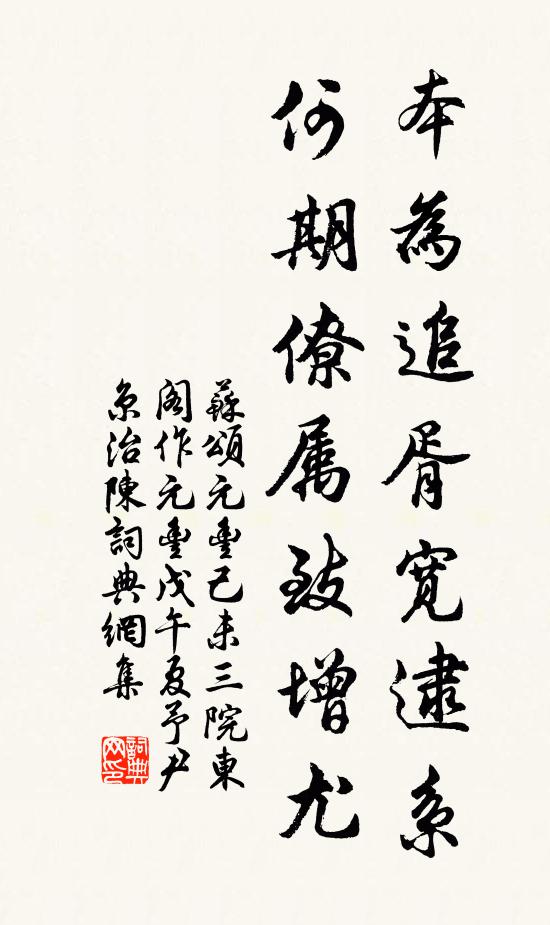 本為追胥寬逮系
何期僚属致增尤
蘇頌元豊己未三院東
閣作元豊戊午夏予尹
京治陳詞典網集
詞典網印